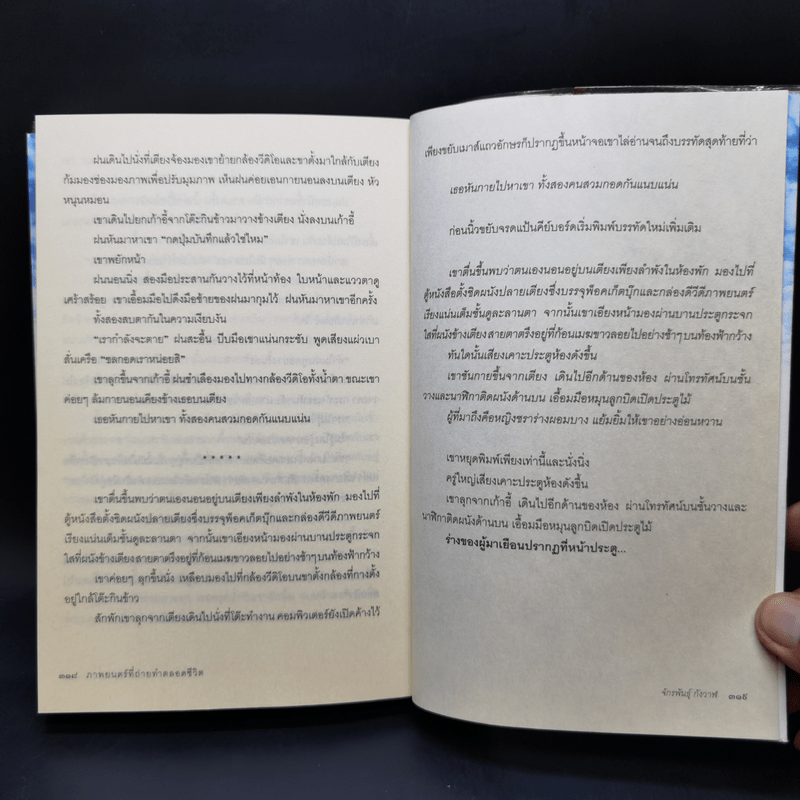 ฝนเดินไปนั่งที่เตียงจ้องมองเขาย้ายกล้องวีดิโอและขาตั้งมาใกล้กับเตียง
ก้มมองช่องมองภาพเพื่อปรับมุมภาพ เห็นฝนค่อยเอนกายนอนลงบนเตียง หัว
หนุนหมอน
เขาเดินไปยกเก้าอี้จากโต๊ะกินข้าวมาวางข้างเตียง นั่งลงบนเก้าอี้
ฝนหันมาหาเขา “กดปุ่มบันทึกแล้วใช่ไหม”
เขาพยักหน้า
ฝนนอนนิ่ง สองมือประสานกันวางไว้ที่หน้าท้อง ใบหน้าและแววตาดู
เศร้าสร้อย เขาเอื้อมมือไปดึงมือซ้ายของฝนมากุมไว้ ฝนหันมาหาเขาอีกครั้ง
ทั้งสองสบตากันในความเงียบงัน
“เรากำลังจะตาย” ฝนสะอื้น บีบมือเขาแน่นกระชับ พูดเสียงแผ่วเบา
สั่นเครือ “ชลกอดเราหน่อยสิ”
เขาลุกขึ้นจากเก้าอี้ ฝนชำเลืองมองไปทางกล้องวีดิโอทั้งน้ำตา ขณะเขา
ค่อยๆ ล้มกายนอนเคียงข้างเธอบนเตียง
เธอหันกายไปหาเขา ทั้งสองคนสวมกอดกันแนบแน่น
• • • • •
เขาตื่นขึ้นพบว่าตนเองนอนอยู่บนเตียงเพียงลำพังในห้องพัก มองไปที่
ตู้หนังสือตั้งชิดผนังปลายเตียงซึ่งบรรจุพ็อคเก็ตบุ๊กและกล่องดีวีดีภาพยนตร์
เรียงแน่นเต็มชั้นดูละลานตา จากนั้นเขาเอียงหน้ามองผ่านบานประตูกระจก
ใสที่ผนังข้างเตียงสายตาตรึงอยู่ที่ก้อนเมฆขาวลอยไปอย่างช้าๆบนท้องฟ้ากว้าง
เขาค่อยๆ ลุกขึ้นนั่ง เหลือบมองไปที่กล้องวีดิโอบนขาตั้งกล้องที่กางตั้ง
อยู่ใกล้โต๊ะกินข้าว
สักพักเขาลุกจากเตียงเดินไปนั่งที่โต๊ะทำงาน คอมพิวเตอร์ยังเปิดค้างไว้
๓๑๘ ภาพยนตร์ที่ถ่ายทำตลอดชีวิต
เพียงขยับเมาส์แถวอักษรก็ปรากฏขึ้นหน้าจอเขาไล่อ่านจนถึงบรรทัดสุดท้ายที่ว่า
เธอหันกายไปหาเขา ทั้งสองคนสวมกอดกันแนบแน่น
ก่อนนิ้วขยับจรดแป้นคีย์บอร์ดเริ่มพิมพ์บรรทัดใหม่เพิ่มเติม
เขาตื่นขึ้นพบว่าตนเองนอนอยู่บนเตียงเพียงลำพังในห้องพัก มองไปที่
ตู้หนังสือตั้งชิดผนังปลายเตียงซึ่งบรรจุพ็อคเก็ตบุ๊กและกล่องดีวีดีภาพยนตร์
เรียงแน่นเต็มชั้นดูละลานตา จากนั้นเขาเอียงหน้ามองผ่านบานประตูกระจก
ใสที่ผนังข้างเตียงสายตาตรึงอยู่ที่ก้อนเมฆขาวลอยไปอย่างช้าๆบนท้องฟ้ากว้าง
ทันใดนั้นเสียงเคาะประตูห้องดังขึ้น
เขายันกายขึ้นจากเตียง เดินไปอีกด้านของห้อง ผ่านโทรทัศน์บนชั้น
วางและนาฬิกาติดผนังด้านบน เอื้อมมือหมุนลูกบิดเปิดประตูไม้
ผู้ที่มาถึงคือหญิงชราร่างผอมบาง แย้มยิ้มให้เขาอย่างอ่อนหวาน
เขาหยุดพิมพ์เพียงเท่านี้และนั่งนิ่ง
ครู่ใหญ่เสียงเคาะประตูห้องดังขึ้น
เขาลุกจากเก้าอี้ เดินไปอีกด้านของห้อง ผ่านโทรทัศน์บนชั้นวางและ
นาฬิกาติดผนังด้านบน เอื้อมมือหมุนลูกบิดเปิดประตูไม้
ร่างของผู้มาเยือนปรากฏที่หน้าประตู...
จักรพันธุ์ กังวาฬ ๓๑๙